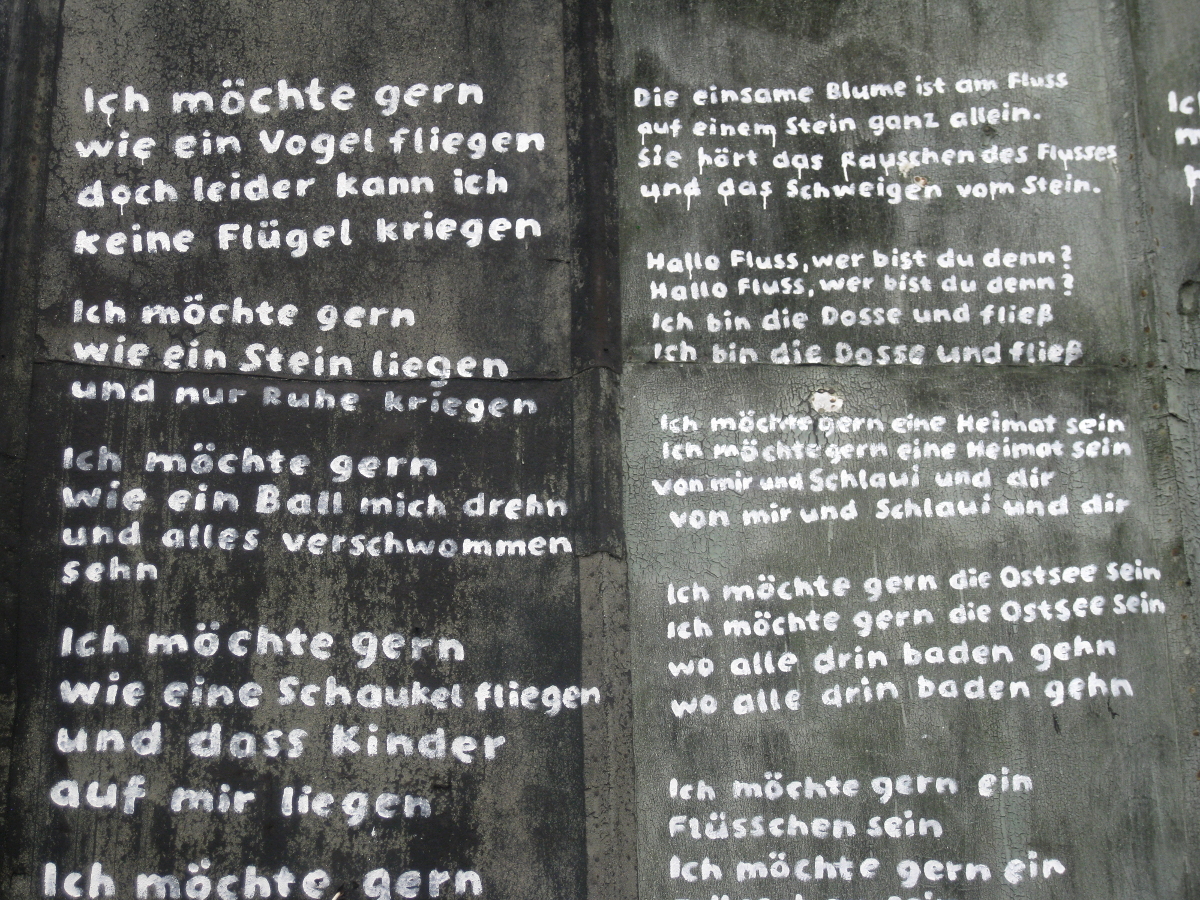 Ich möchte gern
wie ein Vogel fliegen
doch leider kann ich
keine Flügel kriegen
Ich möchte gern
wie ein Stein liegen
und nur Ruhe kriegen
Ich möchte gern
wie ein Ball mich drehn
und alles verschwommen
sehn
Ich möchte gern
wie eine Schaukel fliegen
und dass Kinder
auf mir liegen
Ich möchte gern
Die einsame Blume ist am Fluss
auf einem Stein ganz allein.
Sie hört das Rauschen des Flusses
und das Schweigen vom Stein.
Hallo Fluss, wer bist du denn?
Hallo Fluss, wer bist du denn?
Ich bin die Dosse und fließ
Ich bin die Dosse und fließ
Ich möchte gern eine Heimat sein
Ich möchte gern eine Heimat sein
von mir und Schlaui und dir
von mir und Schlaui und dir
Ich möchte gern die Ostsee sein
Ich möchte gern die Ostsee sein
wo alle drin baden gehn
wo alle drin baden gehn
Ich möchte gern ein
Flüsschen sein
Ich möchte gern ein